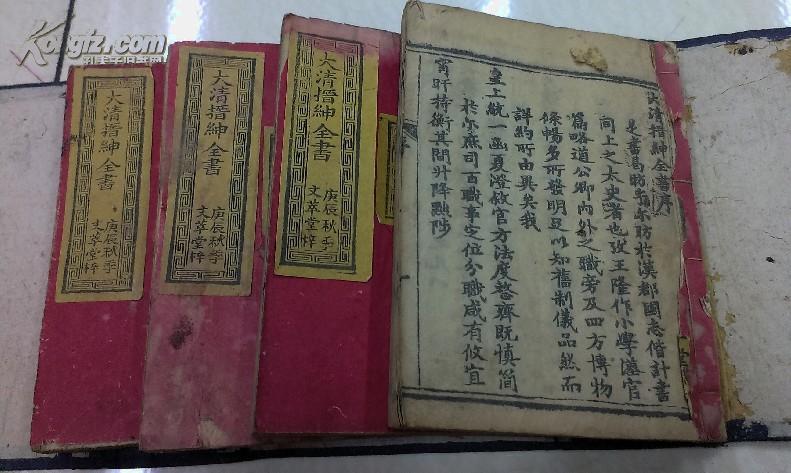 Kongfz.com
大清搢紳全書
庚辰秋季
文萃堂梓
大清搢紳全書
庚辰秋季
文萃堂梓
大清搢紳全書
庚辰秋季
文萃堂梓
大清搢紳全書序
是書曷昉乎尔昉於漢郡國志偕計書
同上之太史者也攷王隆作小學漢官
篇略道公卿內外之職旁及四方博物
條暢多所發明足以知舊制儀品然而
詳約所由異矣我
皇上統一函夏澄敘官方法度整齊既慎簡
於尔庶司百職事定位分職咸有攸宜
宵旰持衡其間升降黜陟